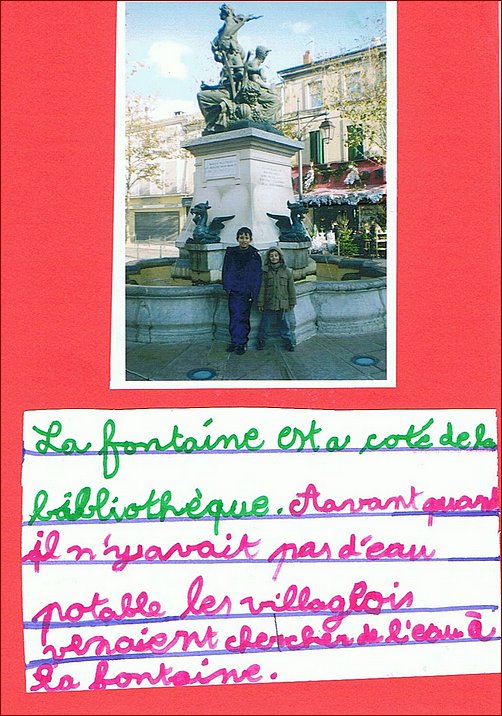 La fontaine est a coté de la
bibliothèque. Aavant quand
il n'yavait pas d'eau
potable les villaglois
venaient chercher de l'eau à
la fontaine.